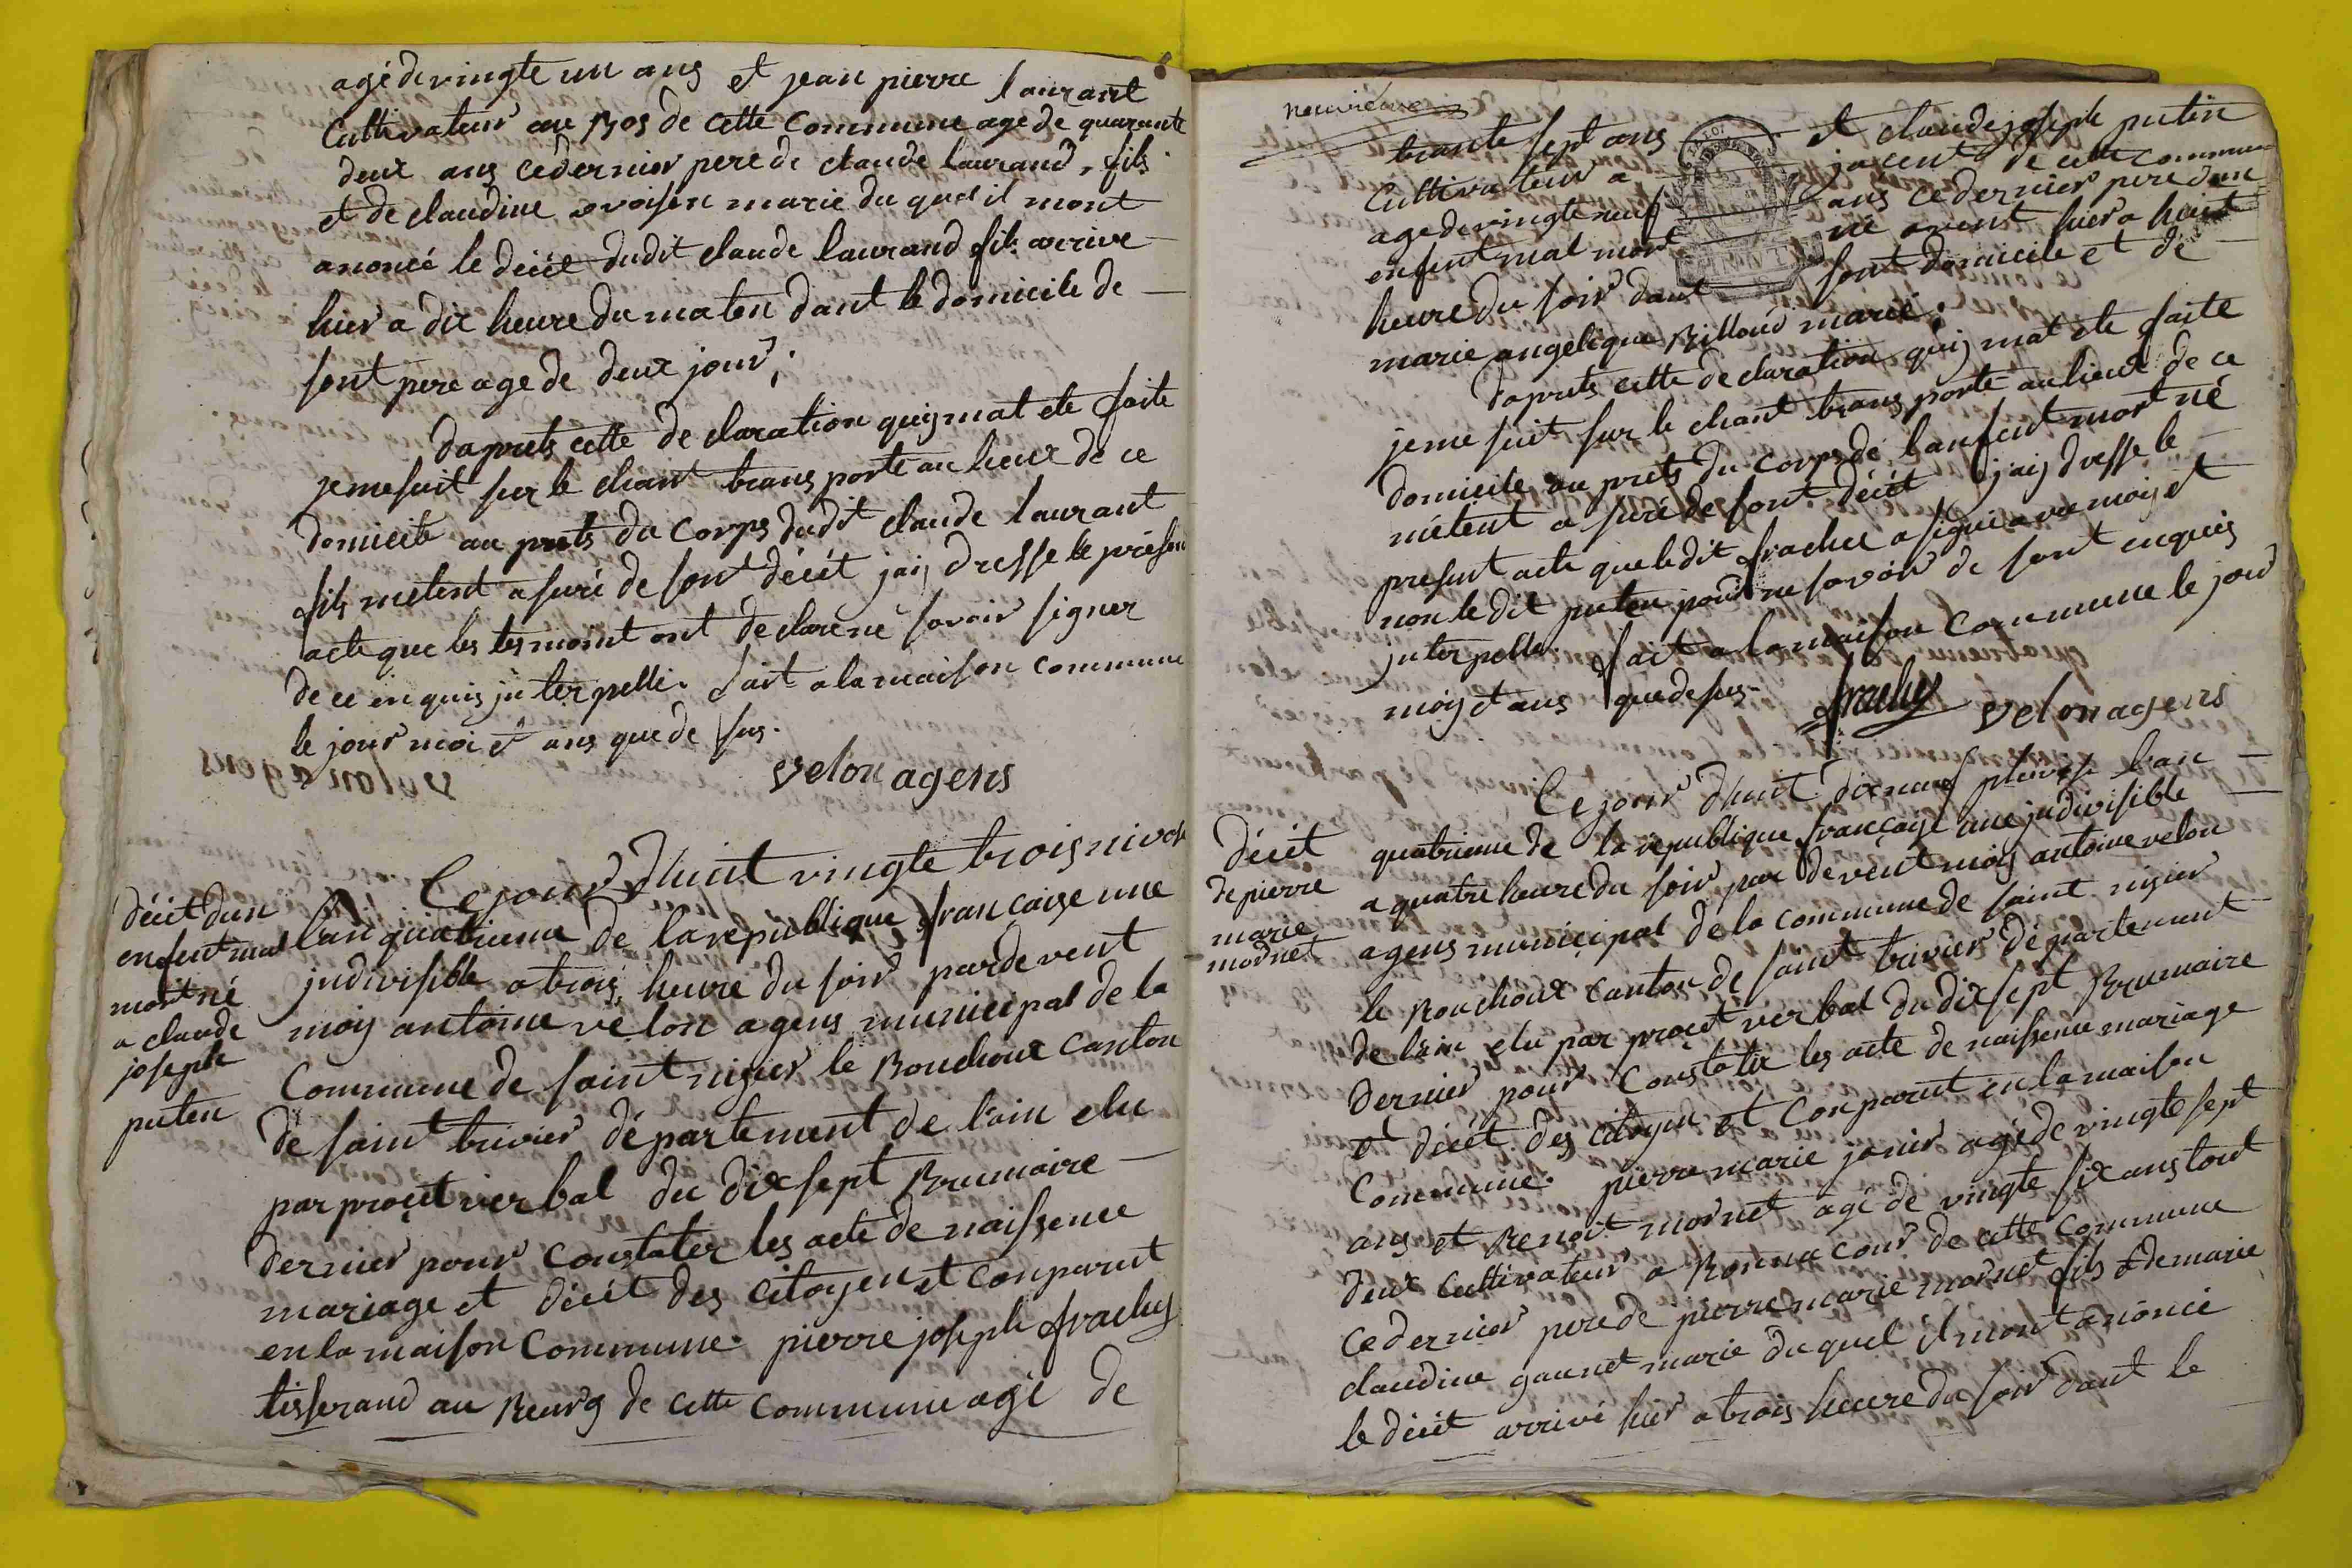 agé de vingte un ans et jean pierre laurant
Cultivateur au Bos de cette Commune age de quarante
deux ans ce dernier pere de claude laurand, fils
et de claudine voisin marie du quel il mont
anoncé le décèt dudit claude laurand fils arrive
hier a dix heure du maten dant le domicile de
sont pere age de deux jour;
daprets cette de claration quij mat ete faite
je me suit sur le chant trans porte au lieux de ce
domicile au prets du Corps dudit claude laurant
fils metent a suré de sont décèt jaij dresse le présen
acte que les tesmoint ont declare ne savoir signer
de ce en quis jnterpellé. fait a la maison commune
le jour moi et ans que de sus.
velon agens
décèt dun
enfent mal
mort né
a claude
joseph
puten
Ce jourd'huit vingte trois nivos
lan quatrieme de la republique francaise une
jndivisible a trois heure du soir par devent
moij antoine velon agens municipal de la
Commune de saint nisier le Bouchoux Canton
de saint trivier département de l'ain elu
par procèt verbal du dix sept Brumaire
dernier pour constater les acte de naissence
mariage et décèt des citoyen et Conparut
en la maison Commune. pierre joseph frachy
tisserand au Bourg de cette commune agé de
neuvième
trante sept ans et claude joseph puten
Cultivateur a jacent de cette commune
age de vingte neuf ans ce dernier pere dun
enfent mal mort né avent hier a huit
heure du soir dant sont domicile et de
marie angelique Billoud marié;
daprets cette declaration quij mat ete faite
je me suit sur le chant trans porte au lieux de ce
domicile au prets du Corps de lanfent mort né
métent a suré de sont décèt jaij dresse le
present acte que ledit frachee a signé a ve moij et
non le dit puten pour ne savoir de sont enquis
jnterpelle. fait a la maison Commune le jour
moij et ans que de sus.
frachy velon agens
décèt
de pierre
marie
mornet
Ce jour dhuit dix neuf pluvose lan
quatrieme de la republique françaije une jndivisible
a quatre heure du soir par devent moij antoine velon
agens municipal de la commune de saint nisier
le Bouchoux canton de saint trivier département
de lain elu par procèt verbal du dix sept Brumaire
dernier pour Constater les acte de naissence mariage
et décèt des citoyen et Conparut en la maison
Commune. pierre marie janier agé de vingte sept
ans et Benoit mornet agé de vingte six ans tout
deux cultivateur a Bonna cour de cette commune
ce dernier pere de pierre marie mornet fils et de marie
claudine gaunet marie du quel il mont anoncé
le décèt arrivé hier a trois heure du soir dant le